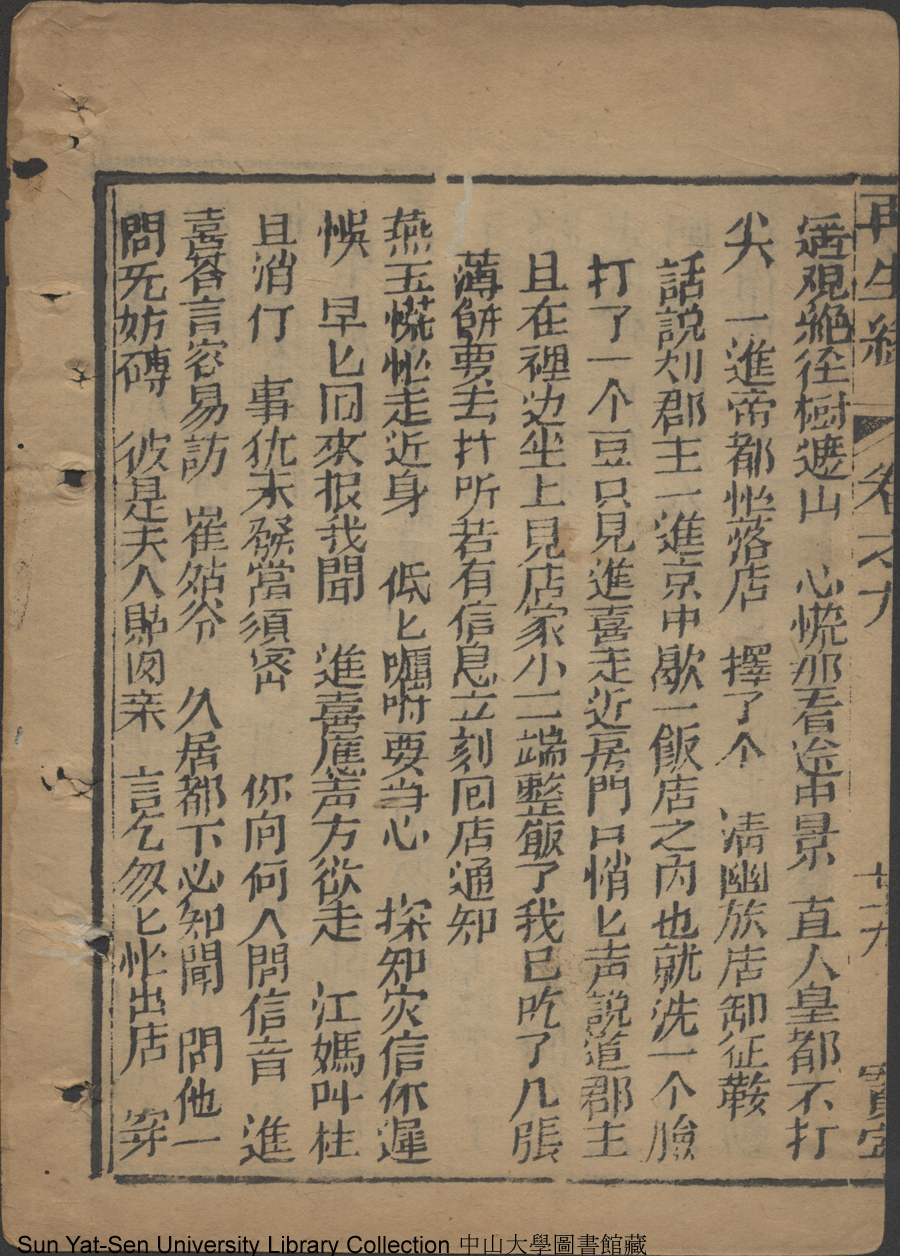 再生緣 卷之九 十九
遥覌絶径樹遮山 心慌那看途中景 直人皇都不打
尖 一進帝都忙落店 擇了个 清幽族店卸征鞍
話說刘郡主一進京中歇一飯店之内也就洗一个臉
打了一个豆只見進喜走近房門口悄匕声說道郡主
且在裡边坐上見店家小二端整飯了我已吃了几張
薄餅要去打听若有信息立刻囘店通知
燕玉慌忙走近身 低匕囑咐要当心 探知灾信休遲
悞 早匕囘來报我聞 進喜應声方欲走 江媽叫住
且消仃 事犹未發當須密 你向何人問信音 進
喜荅言容易訪 崔姑爷 久居都下必知聞 問他一
問无妨礙 彼是夫人貼肉亲 言乞匆匕忙出店 穿
Sun Yat-Sen University Library Collection 中山大學圖書館藏